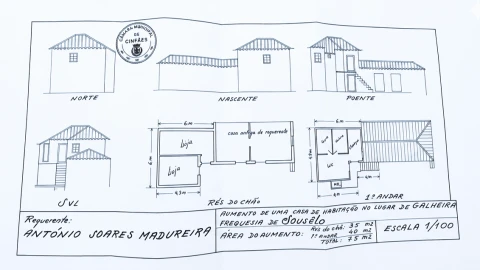 CÂMARA MUNICIPAL
DE
CINFÃES
NORTE
NASCENTE
POENTE
6 m
casa antiga do requerente
loja
loja
4,5 m
6 m
wc
4 m
SUL
RÉS DO CHÃO
1º ANDAR
Requerente:
ANTÓNIO SOARES MADUREIRA
AUMENTO DE UMA CASA DE HABITAÇÃO NO LUGAR DE GALHEIRA
FREGUESIA DE SOUSÊLO
ÁREA DO AUMENTO:
Rés do chão: 35 m2
1º ANDAR 40 m2
TOTAL: 75 m2
ESCALA 1/100